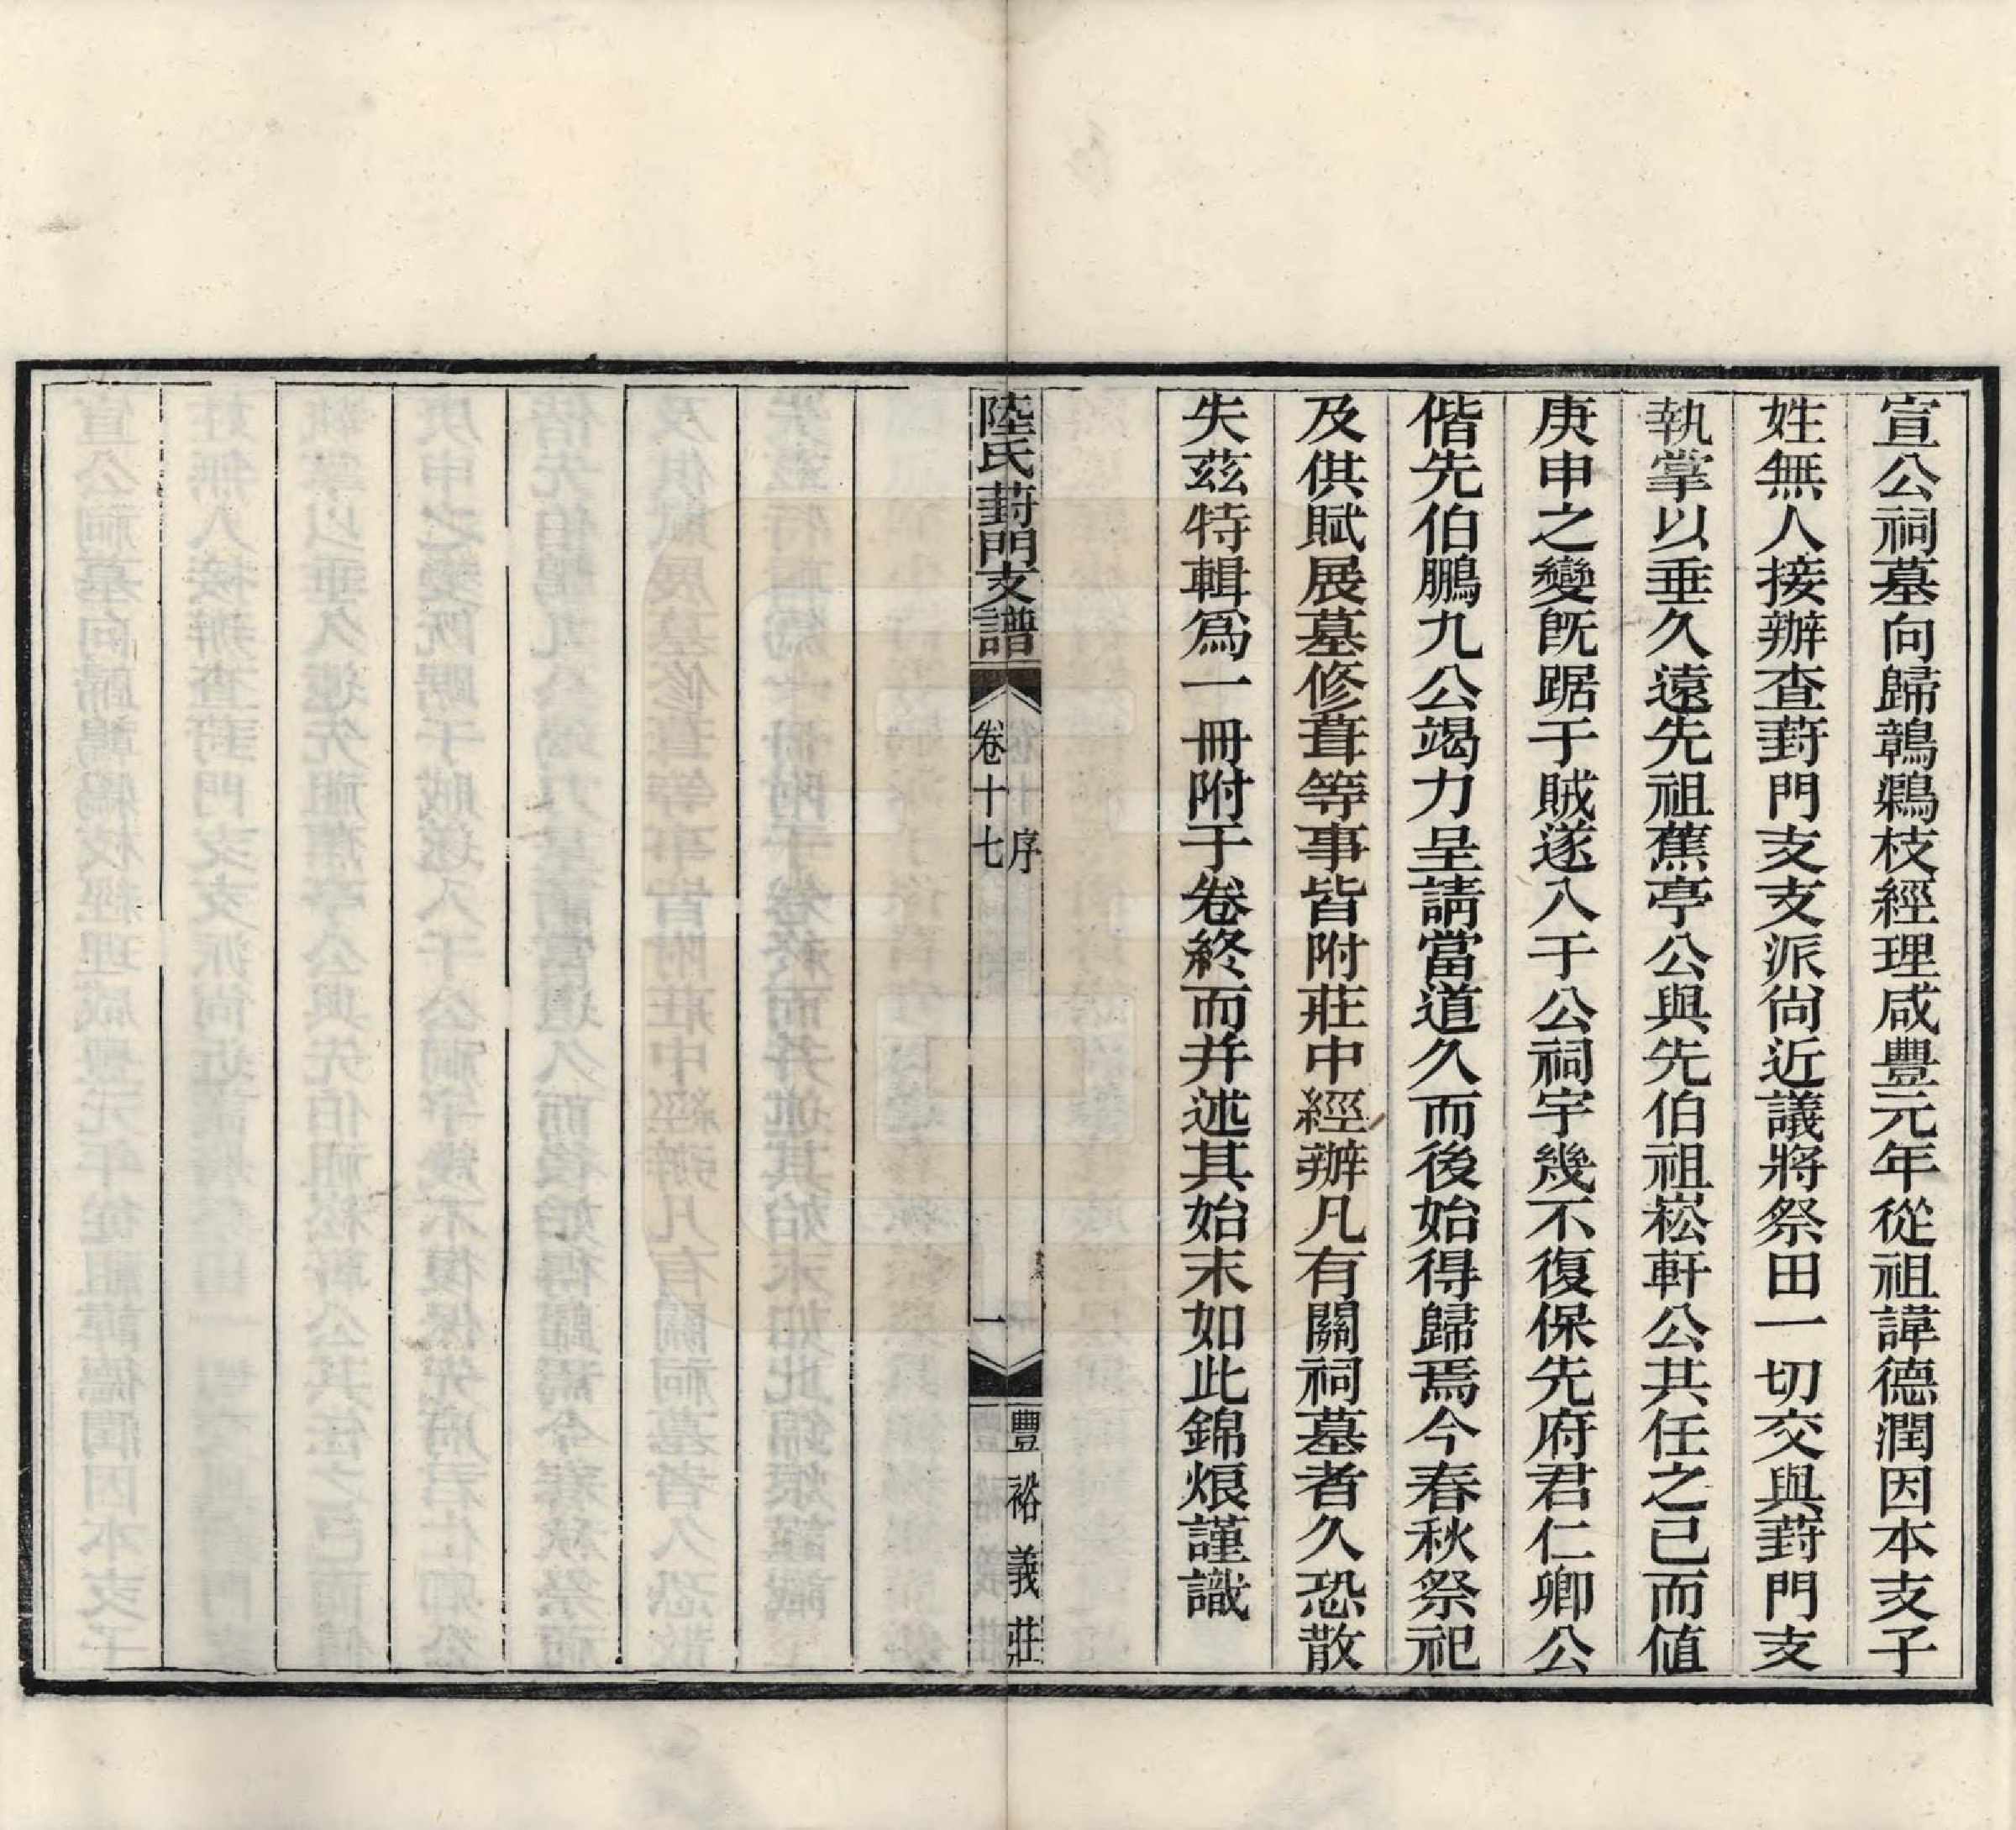 宣公祠墓向歸鷯鶼枝經理咸豐元年從祖諱德潤因本支子
姓無人接辦查葑門支支派尙近議將祭田一切交與葑門支
執掌以垂久遠先祖蕉亭公與先伯祖崧軒公共任之已而値
庚申之變旣踞于賊遂入于公祠宇幾不復保先府君仁卿公
偕先伯鵬九公竭力呈請當道久而後始得歸焉今春秋祭祀
及供賦展墓修葺等事皆附莊中經辦凡有關祠墓者久恐散
失茲特輯爲一冊附于卷終而并述其始末如此錦烺謹識
陸氏葑門支譜
卷十七
序
一
豐裕義莊